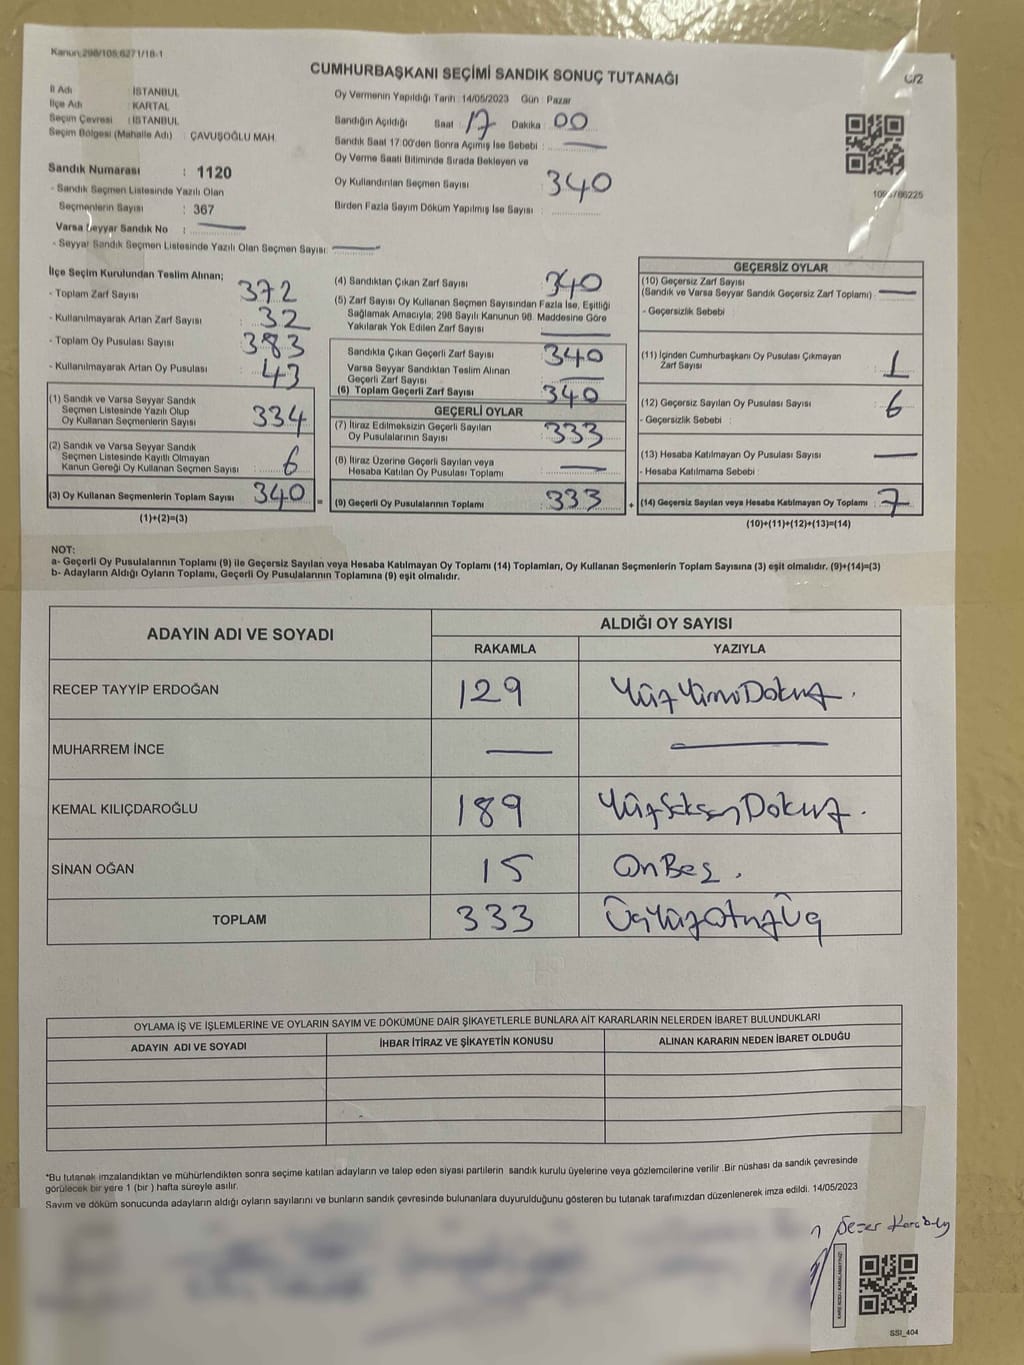 Kanun:298/105;6271/18-1
CUMHURBAŞKANI SEÇİMİ SANDIK SONUÇ TUTANAĞI
C/2
İl Adı : İSTANBUL
İlçe Adı : KARTAL
Seçim Çevresi : İSTANBUL
Seçim Bölgesi (Mahalle Adı) : ÇAVUŞOĞLU MAH.
Sandık Numarası : 1120
- Sandık Seçmen Listesinde Yazılı Olan
Seçmenlerin Sayısı : 367
Varsa Seyyar Sandık No :
- Seyyar Sandık Seçmen Listesinde Yazılı Olan Seçmen Sayısı:
Oy Vermenin Yapıldığı Tarih : 14/05/2023 Gün : Pazar
Sandığın Açıldığı Saat : 17 Dakika : 00
Sandık Saat 17:00'den Sonra Açılmış İse Sebebi :
Oy Verme Saati Bitiminde Sırada Bekleyen ve
Oy Kullandırılan Seçmen Sayısı : 340
Birden Fazla Sayım Döküm Yapılmış İse Sayısı :
İlçe Seçim Kurulundan Teslim Alınan;
- Toplam Zarf Sayısı : 372
- Kullanılmayarak Artan Zarf Sayısı : 32
- Toplam Oy Pusulası Sayısı : 383
- Kullanılmayarak Artan Oy Pusulası : 43
(1) Sandık ve Varsa Seyyar Sandık
Seçmen Listesinde Yazılı Olup
Oy Kullanan Seçmenlerin Sayısı : 334
(2) Sandık ve Varsa Seyyar Sandık
Seçmen Listesinde Kayıtlı Olmayan
Kanun Gereği Oy Kullanan Seçmen Sayısı : 6
(3) Oy Kullanan Seçmenlerin Toplam Sayısı : 340 =
(1)+(2)=(3)
(4) Sandıktan Çıkan Zarf Sayısı : 340
(5) Zarf Sayısı Oy Kullanan Seçmen Sayısından Fazla İse, Eşitliği
Sağlamak Amacıyla; 298 Sayılı Kanunun 98. Maddesine Göre
Yakılarak Yok Edilen Zarf Sayısı
Sandıkta Çıkan Geçerli Zarf Sayısı : 340
Varsa Seyyar Sandıktan Teslim Alınan
Geçerli Zarf Sayısı :
(6) Toplam Geçerli Zarf Sayısı : 340
GEÇERLİ OYLAR
(7) İtiraz Edilmeksizin Geçerli Sayılan
Oy Pusulalarının Sayısı : 333
(8) İtiraz Üzerine Geçerli Sayılan veya
Hesaba Katılan Oy Pusulası Toplamı :
(9) Geçerli Oy Pusulalarının Toplamı : 333 +
GEÇERSİZ OYLAR
(10) Geçersiz Zarf Sayısı
(Sandık ve Varsa Seyyar Sandık Geçersiz Zarf Toplamı) :
- Geçersizlik Sebebi :
(11) İçinden Cumhurbaşkanı Oy Pusulası Çıkmayan
Zarf Sayısı : 1
(12) Geçersiz Sayılan Oy Pusulası Sayısı : 6
- Geçersizlik Sebebi :
(13) Hesaba Katılmayan Oy Pusulası Sayısı :
- Hesaba Katılmama Sebebi :
(14) Geçersiz Sayılan veya Hesaba Katılmayan Oy Toplamı : 7
(10)+(11)+(12)+(13)=(14)
NOT:
a- Geçerli Oy Pusulalarının Toplamı (9) ile Geçersiz Sayılan veya Hesaba Katılmayan Oy Toplamı (14) Toplamları, Oy Kullanan Seçmenlerin Toplam Sayısına (3) eşit olmalıdır. (9)+(14)=(3)
b- Adayların Aldığı Oyların Toplamı, Geçerli Oy Pusulalarının Toplamına (9) eşit olmalıdır.
ADAYIN ADI VE SOYADI
ALDIĞI OY SAYISI
RAKAMLA YAZIYLA
RECEP TAYYİP ERDOĞAN 129 YüzYirmiDokuz.
MUHARREM İNCE
KEMAL KILIÇDAROĞLU 189 YüzSeksenDokuz.
SİNAN OĞAN 15 OnBeş.
TOPLAM 333 ÜçYüzOtuzÜç
OYLAMA İŞ VE İŞLEMLERİNE VE OYLARIN SAYIM VE DÖKÜMÜNE DAİR ŞİKAYETLERLE BUNLARA AİT KARARLARIN NELERDEN İBARET BULUNDUKLARI
ADAYIN ADI VE SOYADI İHBAR İTİRAZ VE ŞİKAYETİN KONUSU ALINAN KARARIN NEDEN İBARET OLDUĞU
*Bu tutanak imzalandıktan ve mühürlendikten sonra seçime katılan adayların ve talep eden siyasi partilerin sandık kurulu üyelerine veya gözlemcilerine verilir .Bir nüshası da sandık çevresinde
görülecek bir yere 1 (bir ) hafta süreyle asılır.
Sayım ve döküm sonucunda adayların aldığı oyların sayılarını ve bunların sandık çevresinde bulunanlara duyurulduğunu gösteren bu tutanak tarafımızdan düzenlenerek imza edildi. 14/05/2023
Sezer
SSI_404